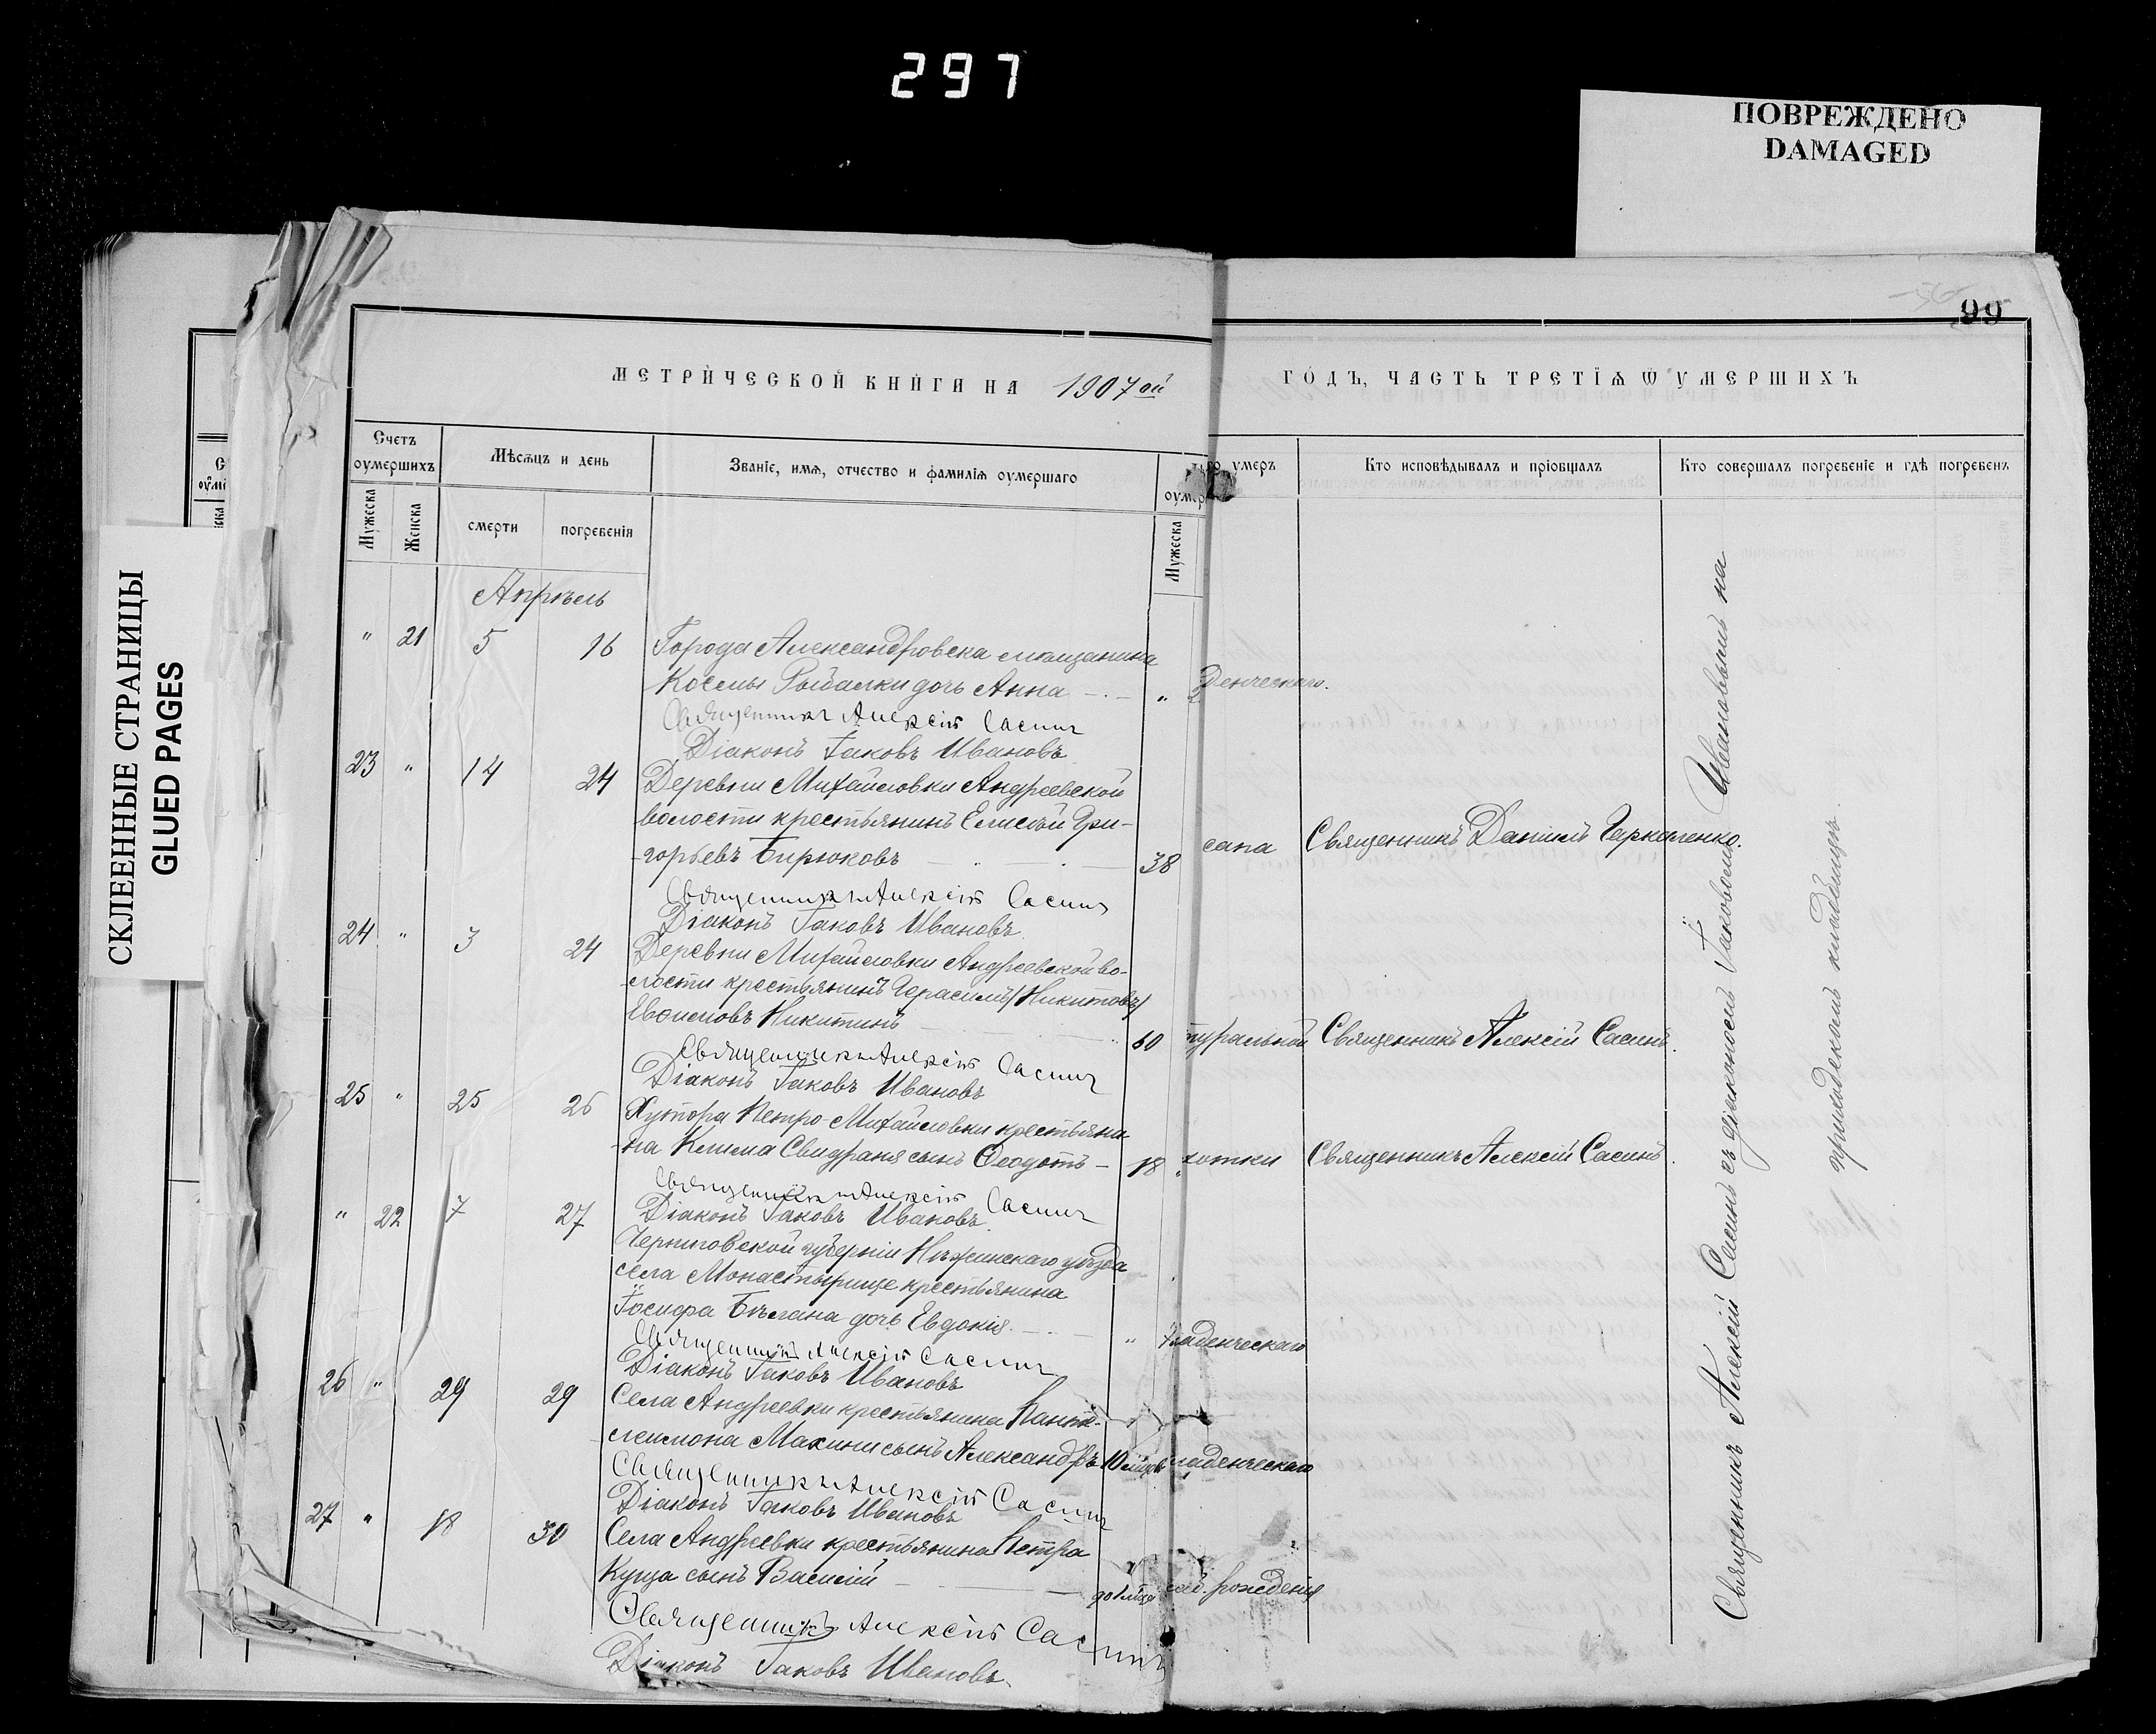 297
ПОВРЕЖДЕНО
DAMAGED
СКЛЕЕННЫЕ СТРАНИЦЫ
GLUED PAGES
99
МЕТРИЧЕСКОЙ КНИГИ НА 1907 ой
ГОДЪ, ЧАСТЬ ТРЕТІЯ Ѿ УМЕРШИХЪ
Счетъ оумершихъ
Мѣсяцъ и день
Званіе, имя, отчество и фамилія оумершаго
оумер
умеръ
Кто исповѣдывалъ и пріобщалъ
Кто совершалъ погребеніе и гдѣ погребенъ
Мужеска
Женска
смерти
погребенія
Мужеска
Апрѣль
" 21 5 16 Города Александровска мѣщанина
Космы Рыбалки дочь Анна "
денческаго.
Священникъ Алексій Сасинъ
Діаконъ Іаковъ Ивановъ
23 " 14 24 Деревни Михайловки Андреевской
волости крестьянинъ Елисѣй Гри-
-горьевъ Бирюковъ 38
Священникъ Даніилъ
Священникъ Алексій Сасинъ
Діаконъ Іаковъ Ивановъ
24 " 3 24 Деревни Михайловки Андреевской во-
-лости крестьянинъ Герасимъ (Никитовъ)
Никитинъ 60
туральной Священникъ Алексій Сасинъ.
Священникъ Алексій Сасинъ
Діаконъ Іаковъ Ивановъ
25 " 25 26 Хутора Петро-Михайловки крестьяни-
-на Клима Свидраня сынъ Ѳеодотъ 18
хотки Священникъ Алексій Сасинъ.
Священникъ Алексій Сасинъ
Діаконъ Іаковъ Ивановъ
" 22 7 27 Черниговской губерніи Нѣжинскаго уѣзда
села Монастырище крестьянина
Іосифа Бѣлана дочь Евдокія "
ладенческаго
Священникъ Алексій Сасинъ
Діаконъ Іаковъ Ивановъ
26 " 29 29 Села Андреевки крестьянина Панте-
леимона Махини сынъ Александръ 10 мѣсц
ладенческаго
Священникъ Алексій Сасинъ
Діаконъ Іаковъ Ивановъ
27 " 18 30 Села Андреевки крестьянина Петра
Куща сынъ Василій
рожденія
Священникъ Алексій Сасинъ
Діаконъ Іаковъ Ивановъ
Священникъ Алексій Сасинъ съ діакономъ Іаковомъ Ивановымъ на
приходскомъ кладбищѣ.